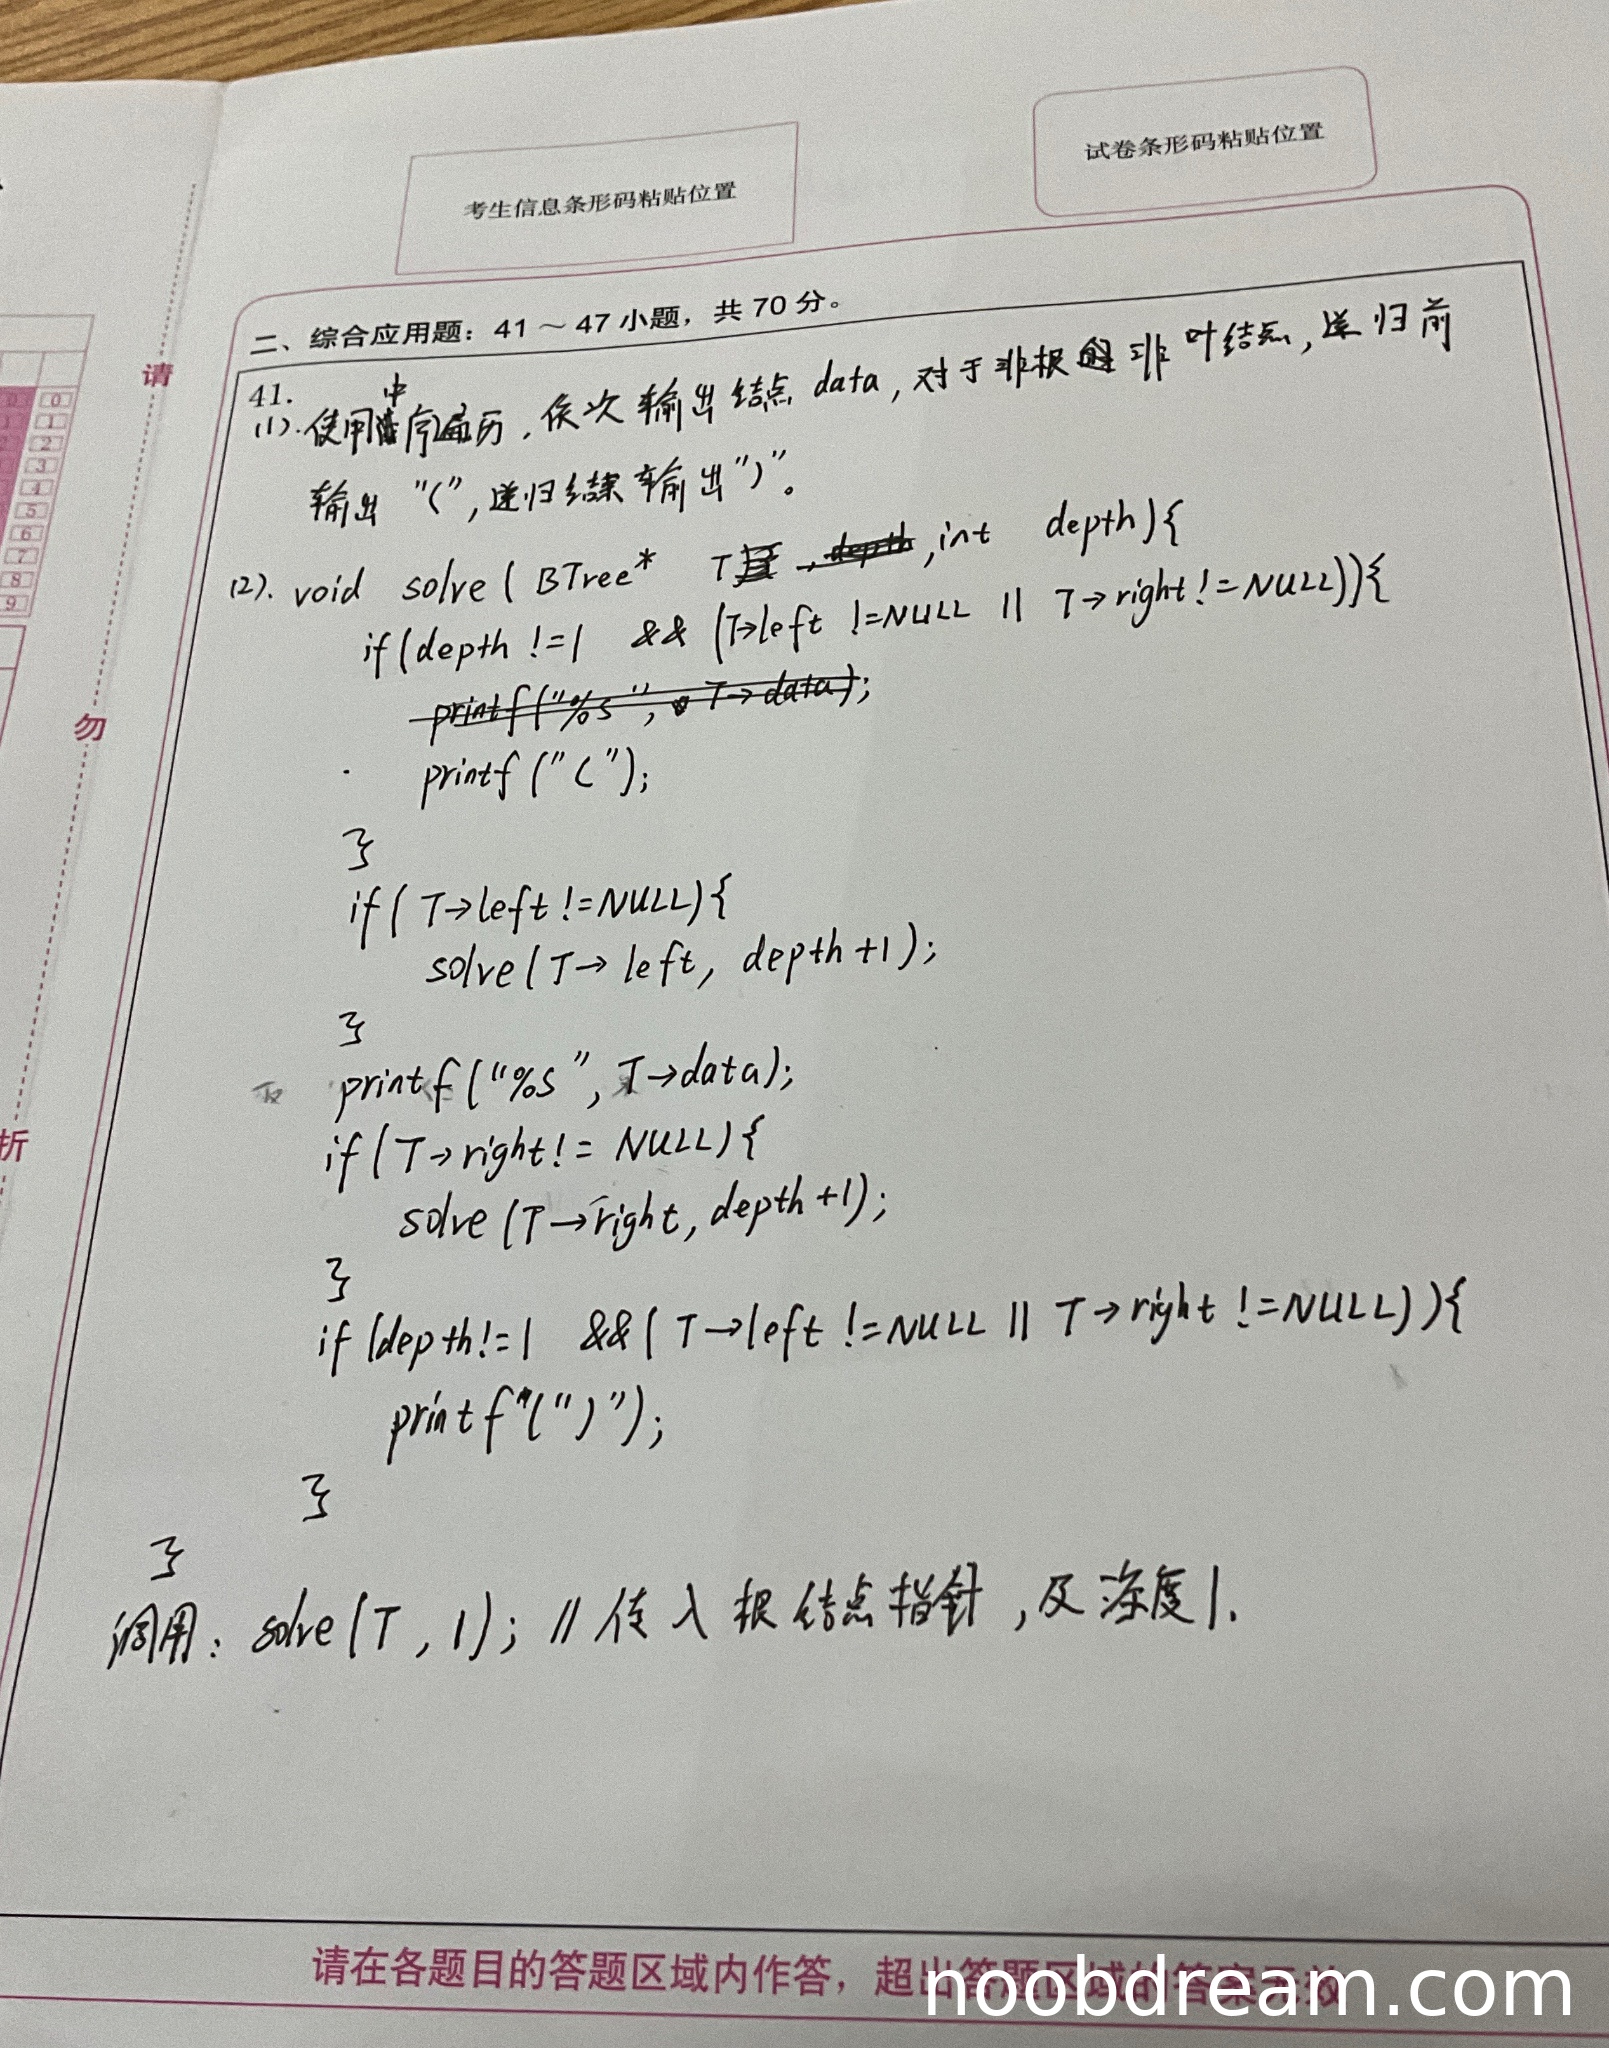 考生信息条形码粘贴位置
试卷条形码粘贴位置
请
勿
折
二、综合应用题：41～47 小题，共 70 分。
41.
(1). 使用中序遍历，依次输出结点 data，对于非根且非叶结点，递归前
输出 "(", 递归结束输出")"。
(2). void solve( BTree* T, int depth){
if(depth !=1 && (T→left !=NULL || T→right !=NULL)){
printf("%s", T→data);
printf("(");
}
if( T→left !=NULL){
solve(T→left, depth+1);
}
printf("%s", T→data);
if(T→right != NULL){
solve(T→right, depth+1);
}
if(depth!=1 &&( T→left !=NULL || T→right !=NULL)){
printf(")");
}
}
调用: solve(T, 1); // 传入根结点指针,及深度1.
请在各题目的答题区域内作答，超出答题区域的答案无效
noobdream.com